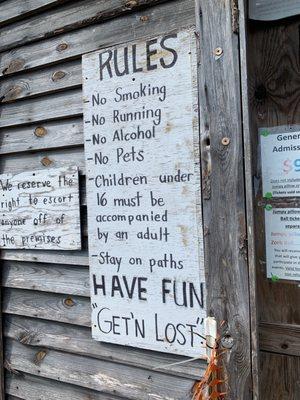 RULES
-No Smoking
-No Running
-No Alcohol
-No Pets
-Children under
16 must be
accompanied
by an adult
-Stay on paths
HAVE FUN
"GET'N LOST"
We reserve the
right to escort
anyone off of
the premises
General
Admission
$
Does not